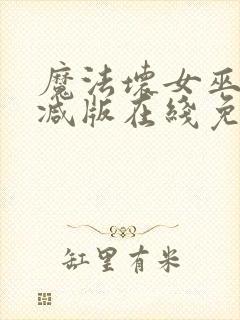 魔法壞女巫
减版在綫免
缸里有米